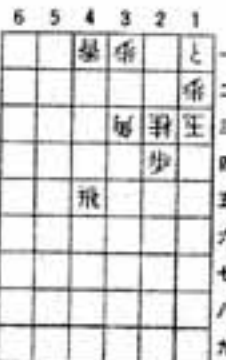 6 5 4 3 2 1
歩 と 一
歩 二
角 桂 玉 三
歩 四
飛 五
六
七
八
九